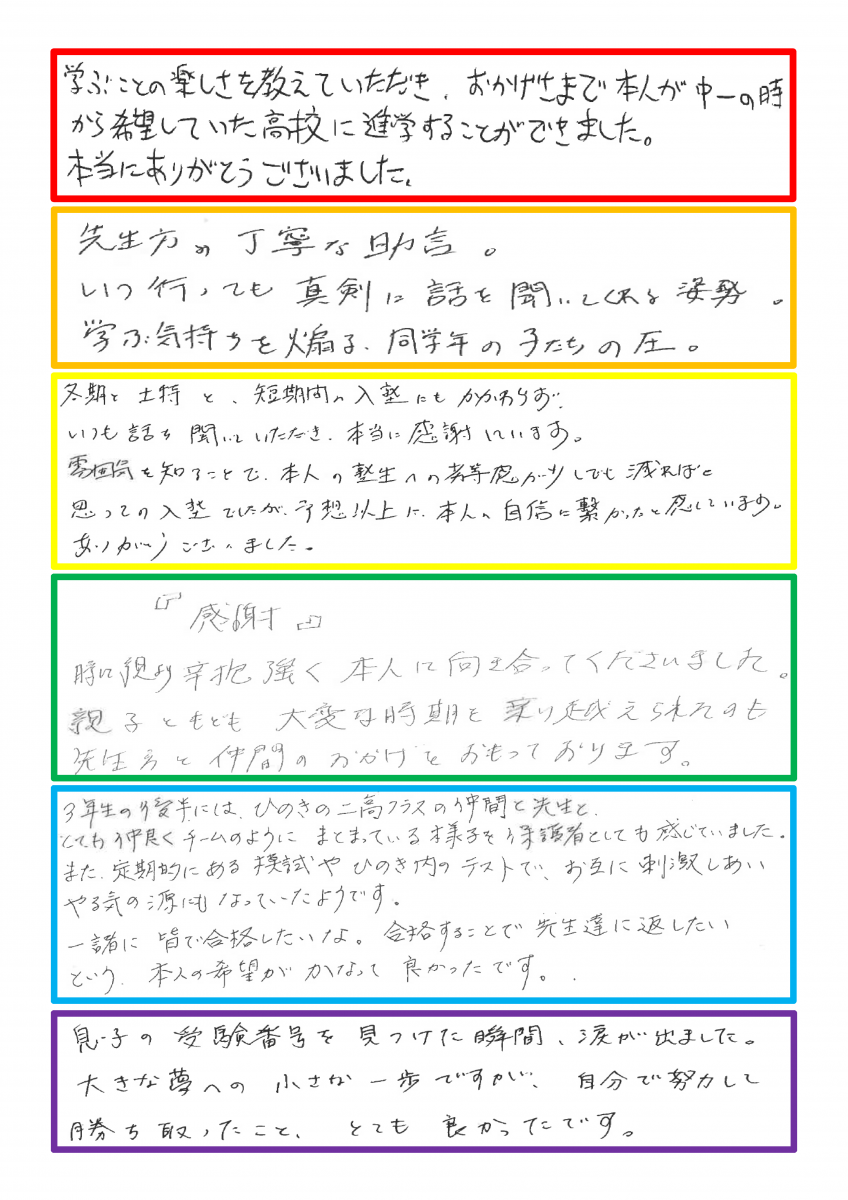 学ぶことの楽しさを教えていただき、おかげさまで本人が中一の時
から希望していた高校に進学することができました。
本当にありがとうございました。
先生方の丁寧な助言。
いつ行っても真剣に話を聞いてくれる姿勢。
学ぶ気持ちを煽る、同学年の子たちの圧。
冬期と土特と、短期間の入塾にもかかわらず、
いつも話を聞いていただき、本当に感謝しています。
雰囲気を知ることで、本人の塾生への劣等感が少しでも減ればと
思っての入塾でしたが、予想以上に、本人の自信に繋がったと感じています。
ありがとうございました。
『感謝』
時に親より辛抱強く本人に向き合ってくださいました。
親子ともども大変な時期を乗り越えられたのも
先生方と仲間のおかげとおもっております。
3年生の後半には、ひのきの二高クラスの仲間と先生と、
とても仲良くチームのようにまとまっている様子を保護者としても感じていました。
また、定期的にある模試やひのき内のテストで、お互に刺激しあい
やる気の源にもなっていたようです。
一諸に皆で合格したいな。合格することで先生達に返したい
という、本人の希望がかなって良かったです。
息子の受験番号を見つけた瞬間、涙が出ました。
大きな夢への小さな一歩ですが、自分で努力して
勝ち取ったこと、とても良かったです。